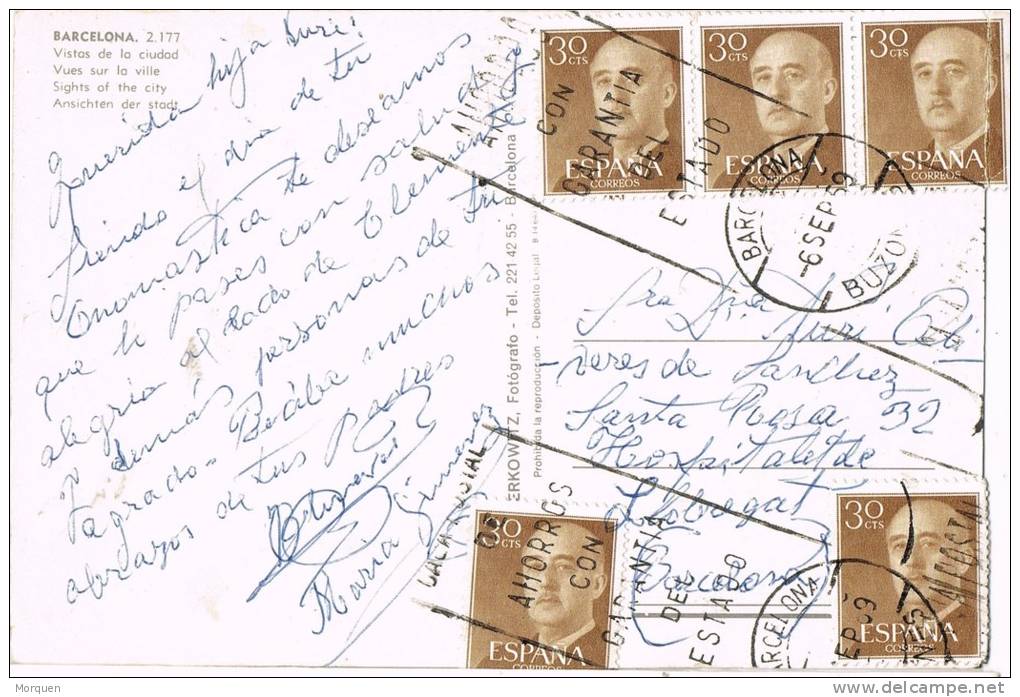 BARCELONA. 2.177
Vistas de la ciudad
Vues sur la ville
Sights of the city
Ansichten der stadt
Querida hija Nuri:
siendo el dia de tu
Onomastica te deseamos
que lo pases con salud y
alegria al lado de Clemente
y demás personas de tu
agrado. Recibe muchos
abrazos de tus Padres
Maria Gimenez
ERKOWITZ, Fotógrafo - Tel. 221 42 55 - Barcelona
Prohibida la reproducción - Depósito Legal B
30 CTS
ESPAÑA
CORREOS
30 CTS
ESPAÑA
CORREOS
30 CTS
ESPAÑA
CORREOS
CON
GARANTIA
DEL
ESTADO
BARCELONA
-6 SEP 69
BUZON
Sra Dña Nuri Oli-
veres de Sanchez
Santa Rosa 32
Hospitalet de
Llobregat
Barcelona
CAJA POSTAL
DE
AHORROS
CON
GARANTIA
DEL
ESTADO
30 CTS
ESPAÑA
CORREOS
BARCELONA
30 CTS
ESPAÑA
CORREOS
Morquen
delcampe.net